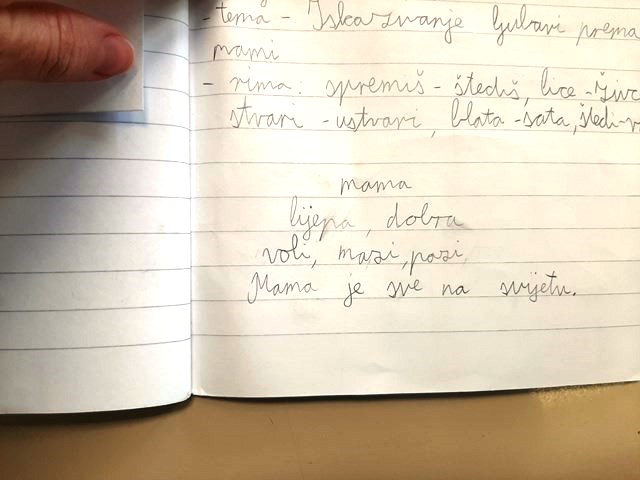 - tema - Iskazivanje ljubavi prema
mami
- rima: spremiš - štediš, lice - živc
stvari - ustvari, blata - sata, štedi - v
mama
lijepa, dobra
voli, mazi, pazi,
Mama je sve na svijetu.